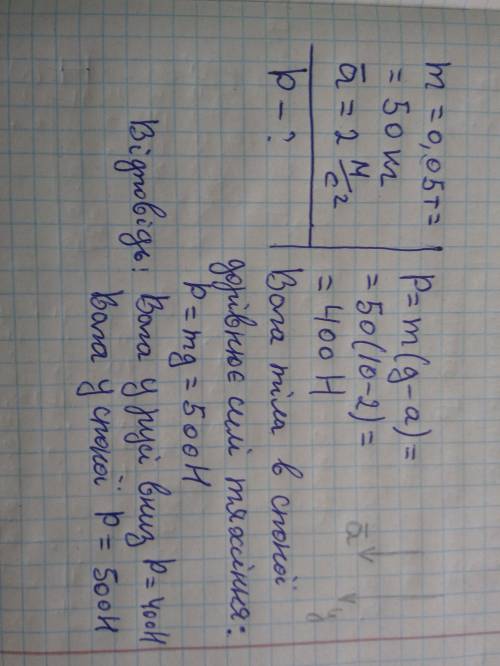 m = 0,05т =
= 50 кг
a̅ = 2 м/с²
p - ?
p = m(g - a) =
= 50(10-2) =
= 400 Н
Вага тіла в спокої
дорівнює силі тяжіння:
p = mg = 500Н
Відповідь: Вага у русі вниз p = 400Н
Вага у спокої p = 500Н
a̅